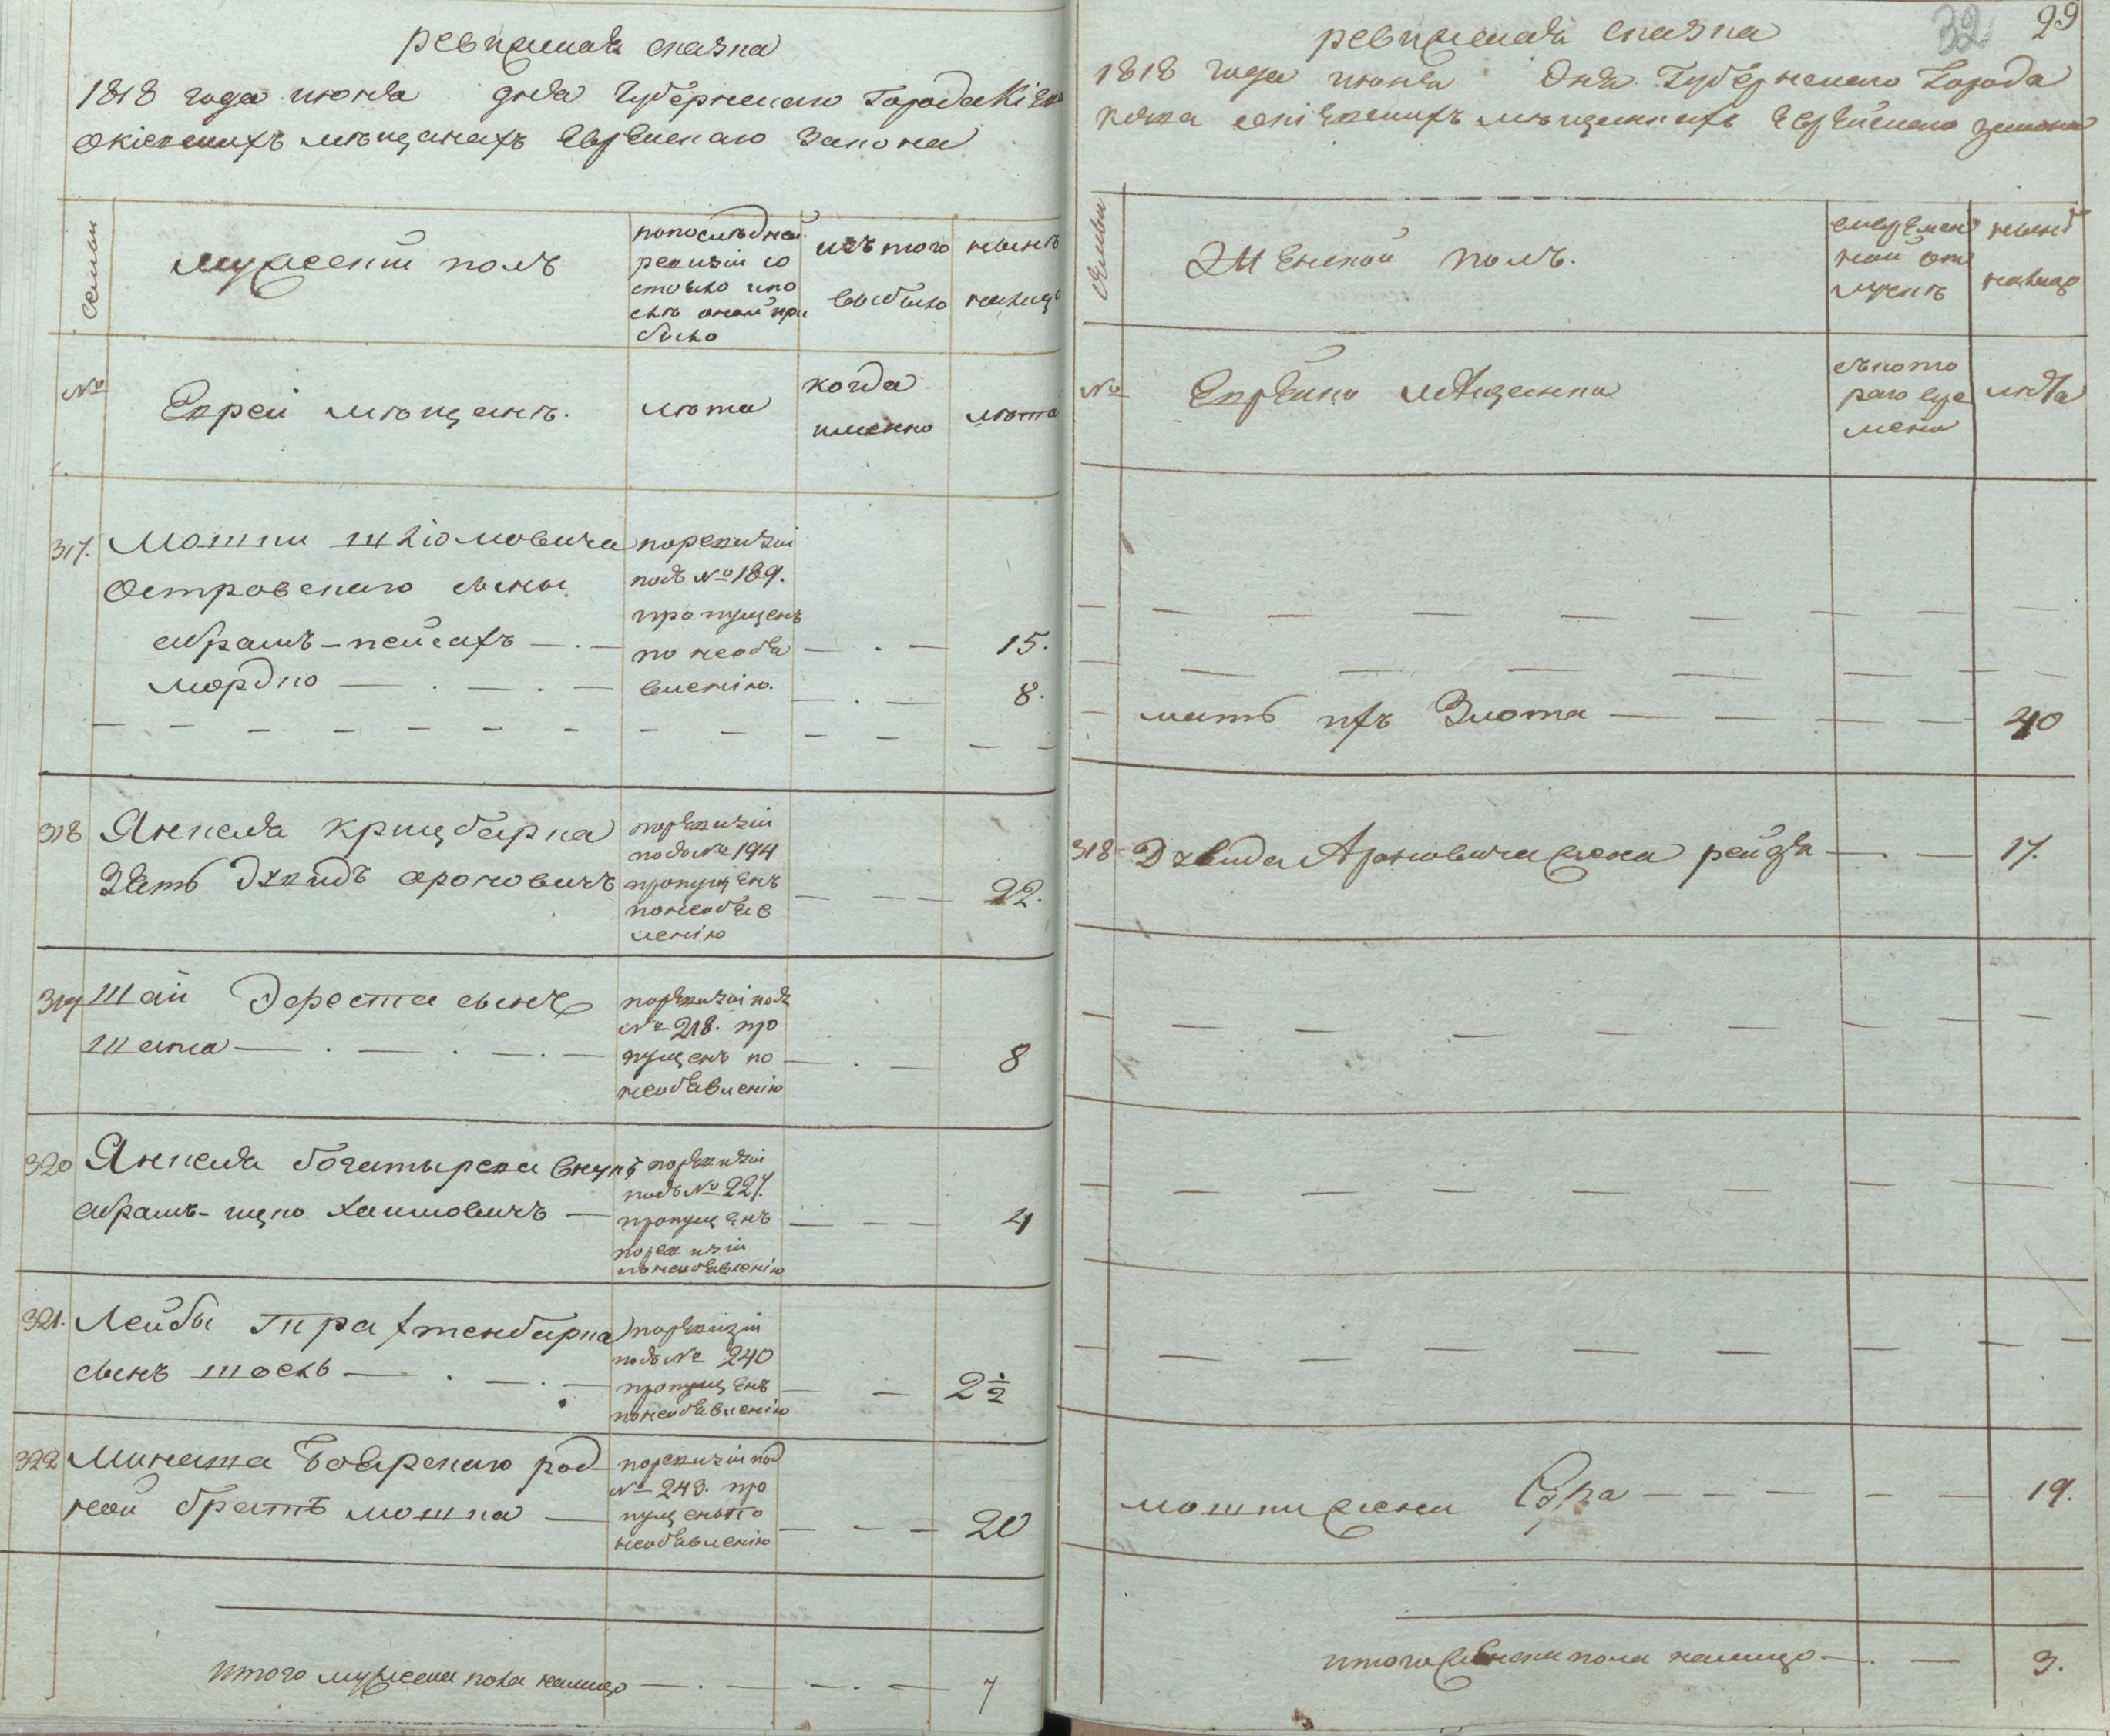 ревижская сказка
1818 года июня дня Губернскаго Города Кіева
о кіевскихъ мѣщанахъ Еврейскаго Закона
Семьи
мужеский полъ
по последней
ревизіи со
стояло и по
слѣ оной при
было
изъ того
выбыло
нынѣ
налицо
№
Евреи мѣщане.
лѣта
когда
именно
лѣта
317. Мошки Шліомовича
Островскаго сыны
абрамъ-пейсахъ — . —
мордко — . — . —
по ревизіи
подъ № 189.
пропущенъ
по необъя
вленію.
— . — 15.
— . — 8.
318 Янкеля Крицберка
Зять Давидъ Ароновичъ
по ревизіи
подъ № 194
пропущенъ
по необъяв
ленію
— — — 22.
319 Шаи сынъ
— . — . — . —
по ревизіи подъ
№ 218. про
пущенъ по
необъявленію
— . — 8
320 Янкеля Богатырева внукъ
абрамъ-ицко Хаимовичъ —
по ревизіи
подъ № 227.
пропущенъ
по ревизіи
по необъявленію
— — — 4
321. Лейбы Трахтенберга
сынъ Іосель — . — . —
по ревизіи
подъ № 240
пропущенъ
по необъявленію
— — 2 1/2
322 Боярскаго род
ной братъ мошка —
по ревизіи под
№ 243. про
пущенъ по
необъявленію
— — — 20
итого мужеска пола налицо — . — — . — 7
32 29
ревижская сказка
1818 года июня Дня Губернскаго Города
Кіева о кіевскихъ мѣщанахъ Еврейскаго закона
Семьи
Женской полъ.
во времен
ной от
лучкѣ
нынѣ
налицо
№
Еврейки мѣщанки
съ кото
раго вре
мени
лѣта
мать ихъ Злота — — — — 40
318 Давида Ароновича жена рейзя — . — 17.
мошки жена Сура — — — — — 19.
итого женска пола налицо — . — 3.